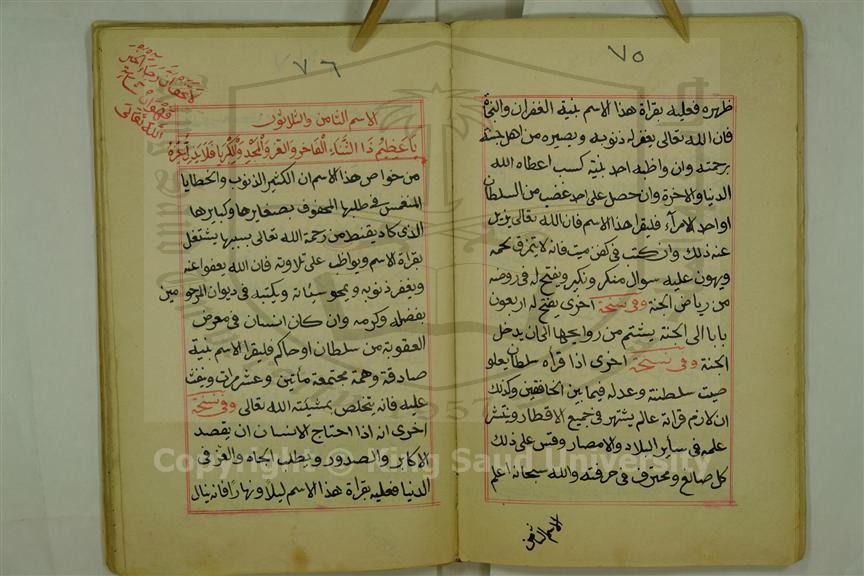 ٧٥
ظهره فعليه بقراة هذا الاسم بنية الغفران والنجاة
فان الله تعالى يغفر له ذنوبه ويصيره من اهل جنته
برحمته وان واظبه احد بنية كسب اعطاه الله
الدنيا والاخرة وان حصل على احد غضب من السلطان
او احد الامرآء فليقرا هذا الاسم فان الله تعالى يزيل
عنه ذلك وان كتب في كفن ميت فانه لا يتمزق لحمه
ويهون عليه سوال منكر ونكير ويفتح له في روضه
من رياض الجنة وفي نسخة اخرى يفتح له اربعون
بابا الى الجنة يشتم من روايحها الى ان يدخل
الجنة وفي نسخة اخرى اذا قراه سلطان يعلو
صيت سلطنته وعدله فيما بين الخافقين وكذلك
ان لازم قراته عالم يشتهر في جميع الاقطار وينتشر
علمه في ساير البلاد والامصار وقس على ذلك
كل صانع ومحترف في حرفته والله سبحانه اعلم
الاسم الثامن
٧٦
الاسم الثامن والثلاثون
يا عظيم ذا الثناء الفاخر والعز والمجد والكبرياء فلا يذل عزه
من خواص هذا الاسم ان الكثير الذنوب والخطايا
المنغمس في طلبها المحفوف بصغايرها وكبايرها
الذى كاد يقنط من رحمة الله تعالى بسببها يشتغل
بقراة الاسم ويواظب على تلاوته فان الله يعفوا عنه
ويغفر ذنوبه ويمحو سيئاته ويكتبه في ديوان المرحومين
بفضله وكرمه وان كان انسان في معرض
العقوبة من سلطان او حاكم فليقرا الاسم بنية
صادقة وهمة مجتمعة مأتين وعشر مرات وينفث
عليه فانه يتخلص بمشيئة الله تعالى وفي نسخة
اخرى انه اذا احتاج الانسان ان يقصد
الاكابر والصدور ويطلب الجاه والعز في
الدنيا فعليه بقراة هذا الاسم ليلا ونهارا فانه ينال
Copyright © King Saud University
1957